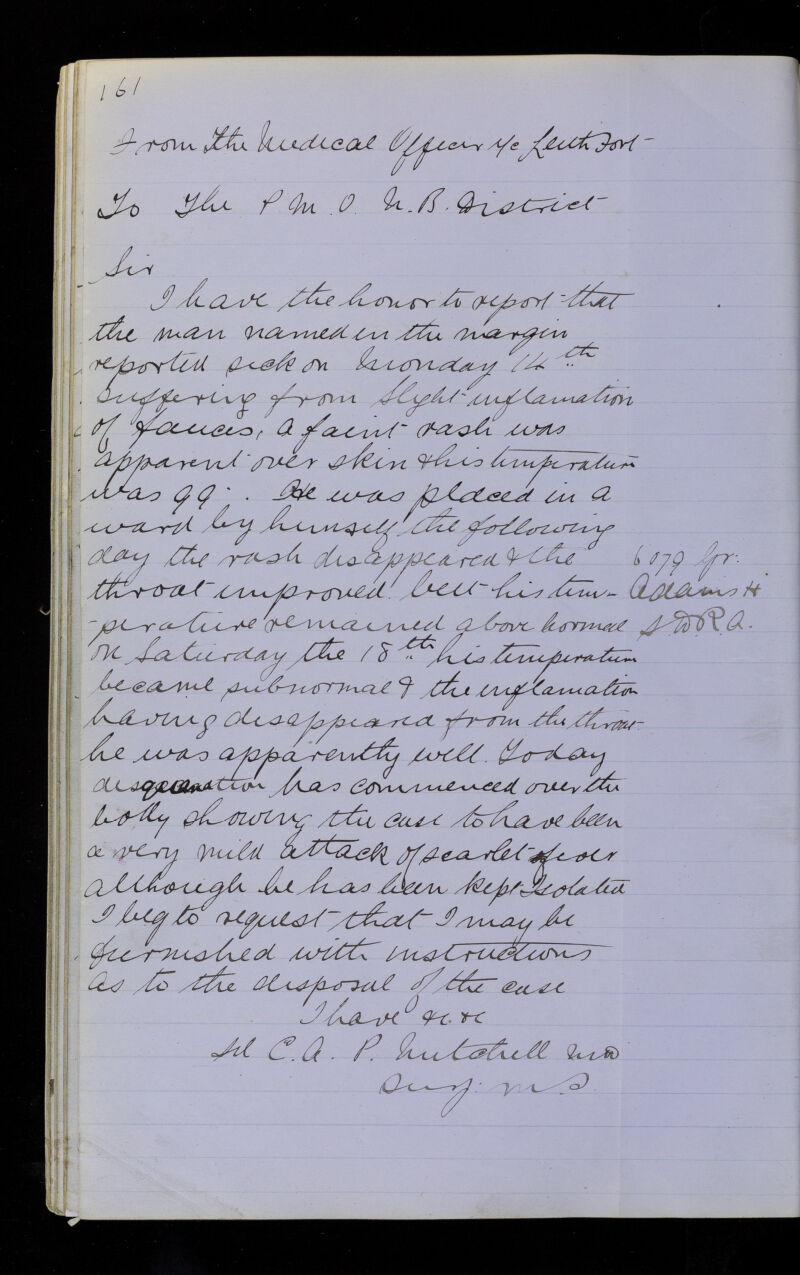 161
From The Medical Officer i/c Leith Fort
To The P. M. O. N. B. District
Sir
I have the honor to report that
the man named in the margin
reported sick on Monday 14th
suffering from slight inflamation
of fauces, a faint rash was
apparent over skin & his temperature
was 99°. He was placed in a
ward by himself the following
day the rash disappeared & the
throat improved but his tem-
-perature remained above normal
on Saturday the 18th his temperature
became subnormal & the inflamation
having disappeared from the throat
he was apparently well. Today
desquamation has commenced over the
body showing the case to have been
a very mild attack of scarlet fever
although he has been kept Isolated
I beg to request that I may be
furnished with instructions
as to the disposal of the case
I have &c &c
Sd C. A. P. Mitchell MD
Surg: M. S.
6079 Gr:
Adams H
S. D. R. A.